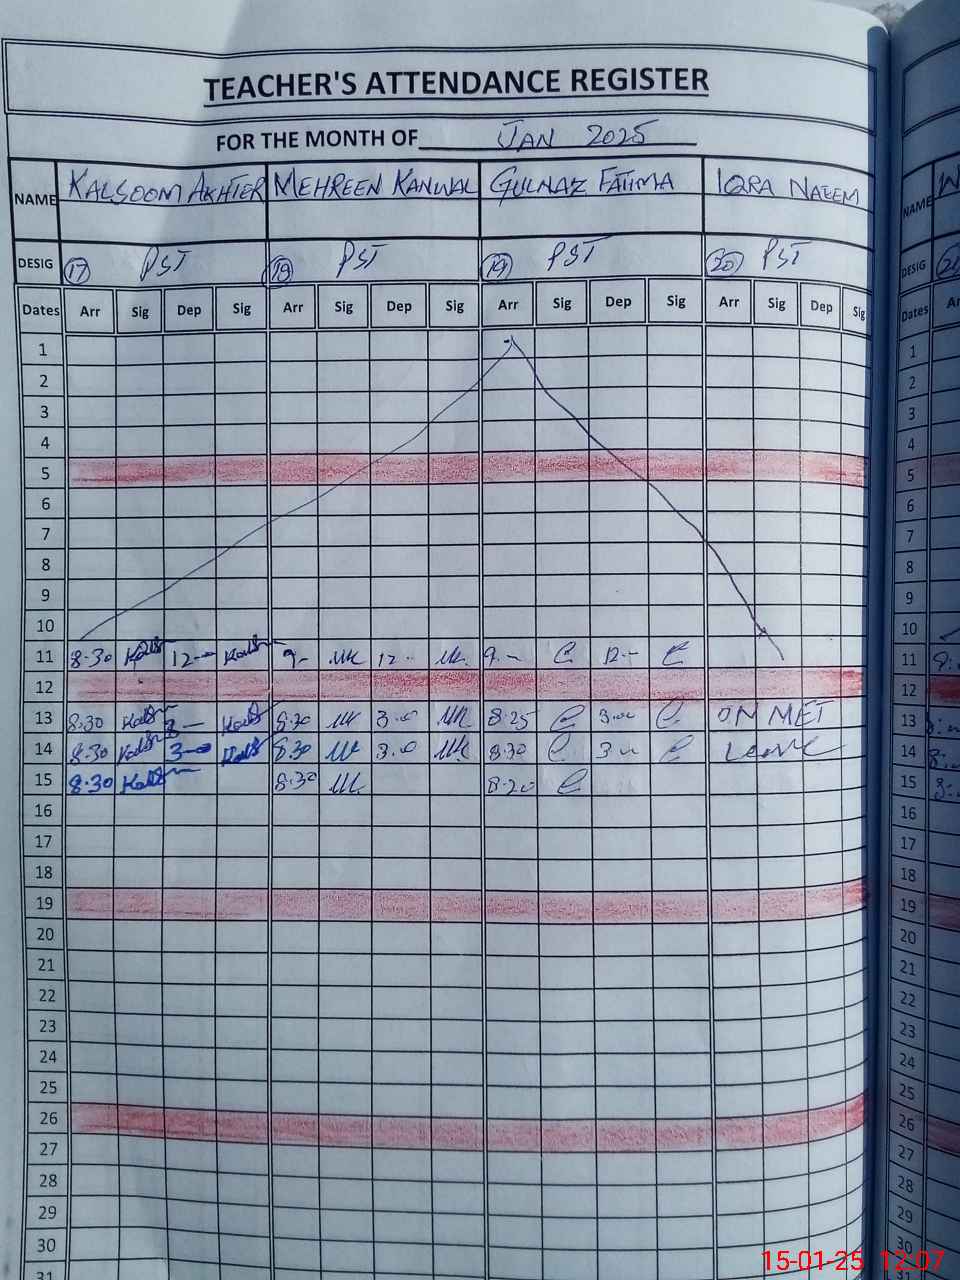 TEACHER'S ATTENDANCE REGISTER
FOR THE MONTH OF JAN 2025
NAME KALSOOM AKHTER MEHREEN KANWAL GULNAZ FATIMA IQRA NAEEM
DESIG 17 PST 18 PST 19 PST 20 PST
Dates Arr Sig Dep Sig Arr Sig Dep Sig Arr Sig Dep Sig Arr Sig Dep Sig
1
2
3
4
5
6
7
8
9
10
11 8.30 12- 9- MK 12- MK 9- 12-
12
13 8.30 3- 8.30 MK 3.0 MK 8.25 3.00 ON MET
14 8.30 3- 8.30 MK 3.0 MK 8.30 3- Leave
15 8.30 8.30 MK 8.20
16
17
18
19
20
21
22
23
24
25
26
27
28
29
30
31
NAME
DESIG 21
Dates Ar
1
2
3
4
5
6
7
8
9
10
11
12
13
14
15
16
17
18
19
20
21
22
23
24
25
26
27
28
29
30
15-01-25 12:07